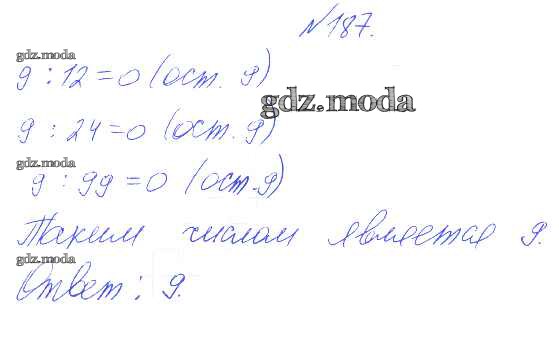 №187.
gdz.moda
9 : 12 = 0 (ост. 9)
gdz.moda
9 : 24 = 0 (ост. 9)
gdz.moda
9 : 99 = 0 (ост. 9)
Таким числом является 9.
gdz.moda
Ответ: 9.